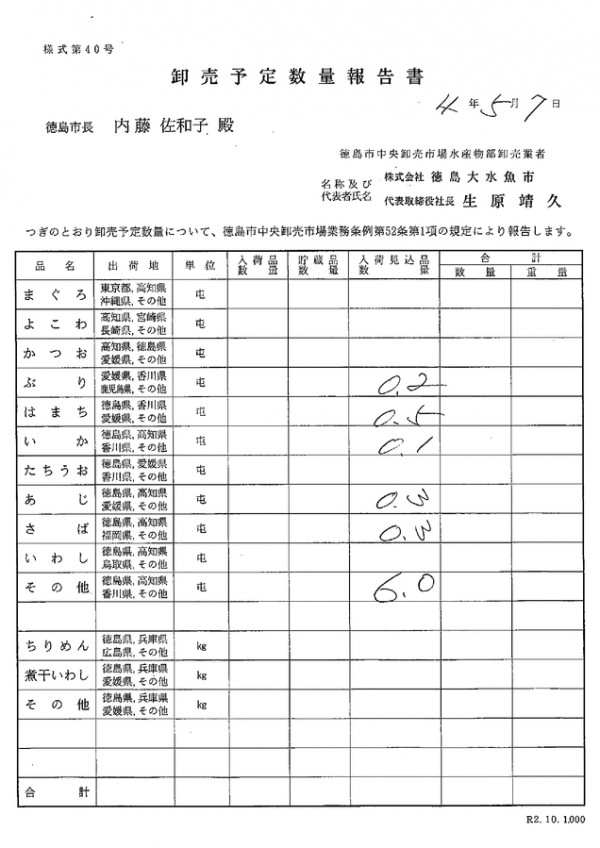 様式第40号
卸売予定数量報告書
4年5月7日
徳島市長 内藤 佐和子 殿
徳島市中央卸売市場水産物部卸売業者
名称及び 株式会社 徳島大水魚市
代表者氏名 代表取締役社長 生原靖久
つぎのとおり卸売予定数量について、徳島市中央卸売市場業務条例第52条第1項の規定により報告します。
品名 出荷地 単位 入荷品数量 貯蔵品数量 入荷見込品数量 合計
数量 重量
まぐろ 東京都, 高知県 屯
沖縄県, その他
よこわ 高知県, 宮崎県 屯
長崎県, その他
かつお 高知県, 徳島県 屯
愛媛県, その他
ぶり 愛媛県, 香川県 屯 0.2
鹿児島県, その他
はまち 徳島県, 香川県 屯 0.5
愛媛県, その他
いか 徳島県, 高知県 屯 0.1
香川県, その他
たちうお 徳島県, 愛媛県 屯
香川県, その他
あじ 徳島県, 高知県 屯 0.3
愛媛県, その他
さば 徳島県, 高知県 屯 0.3
福岡県, その他
いわし 徳島県, 高知県 屯
鳥取県, その他
その他 徳島県, 高知県 屯 6.0
香川県, その他
ちりめん 徳島県, 兵庫県 kg
広島県, その他
煮干いわし 徳島県, 兵庫県 kg
愛媛県, その他
その他 徳島県, 兵庫県 kg
愛媛県, その他
合計
R2.10.1,000